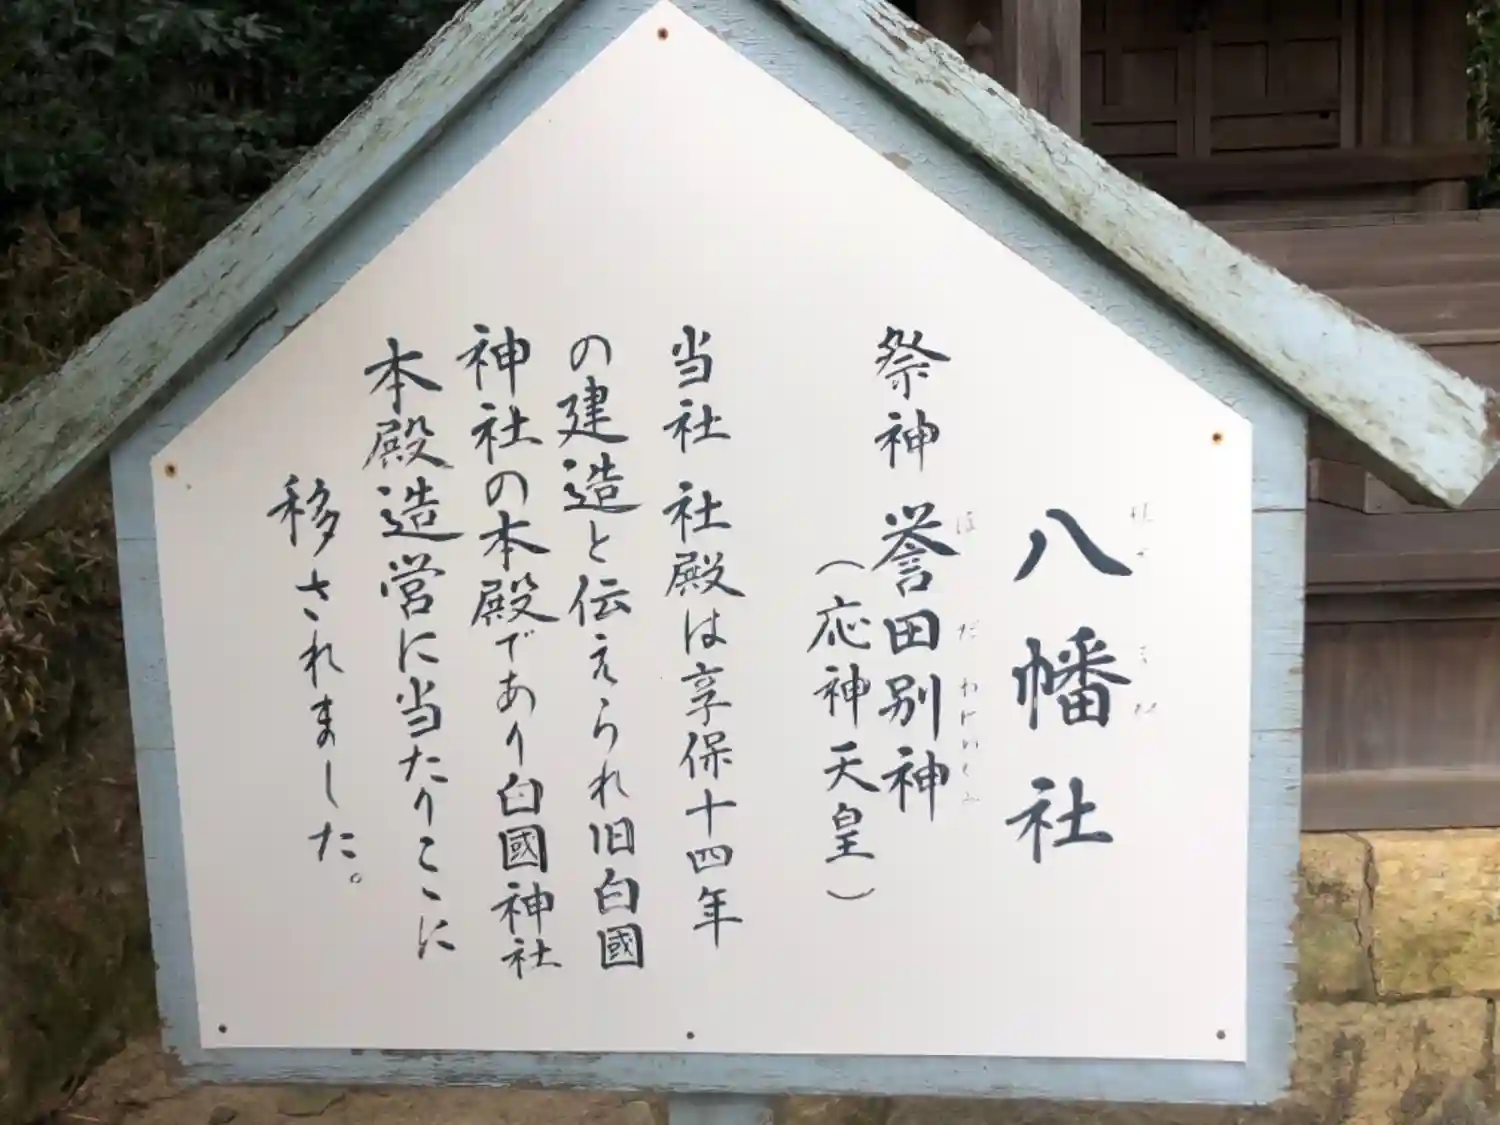 八幡社
祭神 誉田別神
（応神天皇）
当社 社殿は享保十四年
の建造と伝えられ旧白國
神社の本殿であり白國神社
本殿造営に当たりここに
移されました。